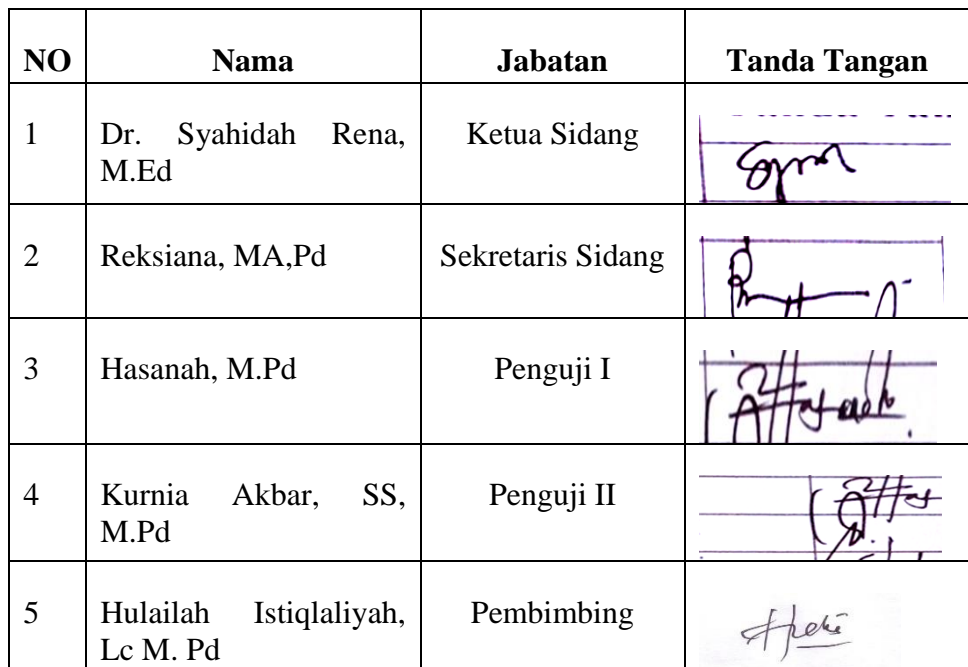 NO Nama Jabatan Tanda Tangan
1 Dr. Syahidah Rena, Ketua Sidang
M.Ed
2 Reksiana, MA,Pd Sekretaris Sidang
3 Hasanah, M.Pd Penguji I
4 Kurnia Akbar, SS, Penguji II
M.Pd
5 Hulailah Istiqlaliyah, Pembimbing
Lc M. Pd